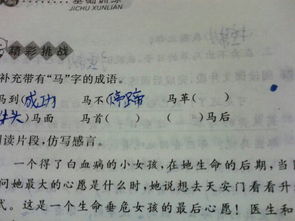 基础训练
JICHU XUNLIAN
精彩挑战
补充带有“马”字的成语。
马到(成功) 马不(蹄蹄) 马革( )
牛头)马面 马首( ) ( )马后
阅读片段，仿写感言。
一个得了白血病的小女孩，在她生命的后期，当
问她最大的心愿是什么时，她说想去天安门看看升
式。这是一个生命垂危女孩的最后心愿！医生和